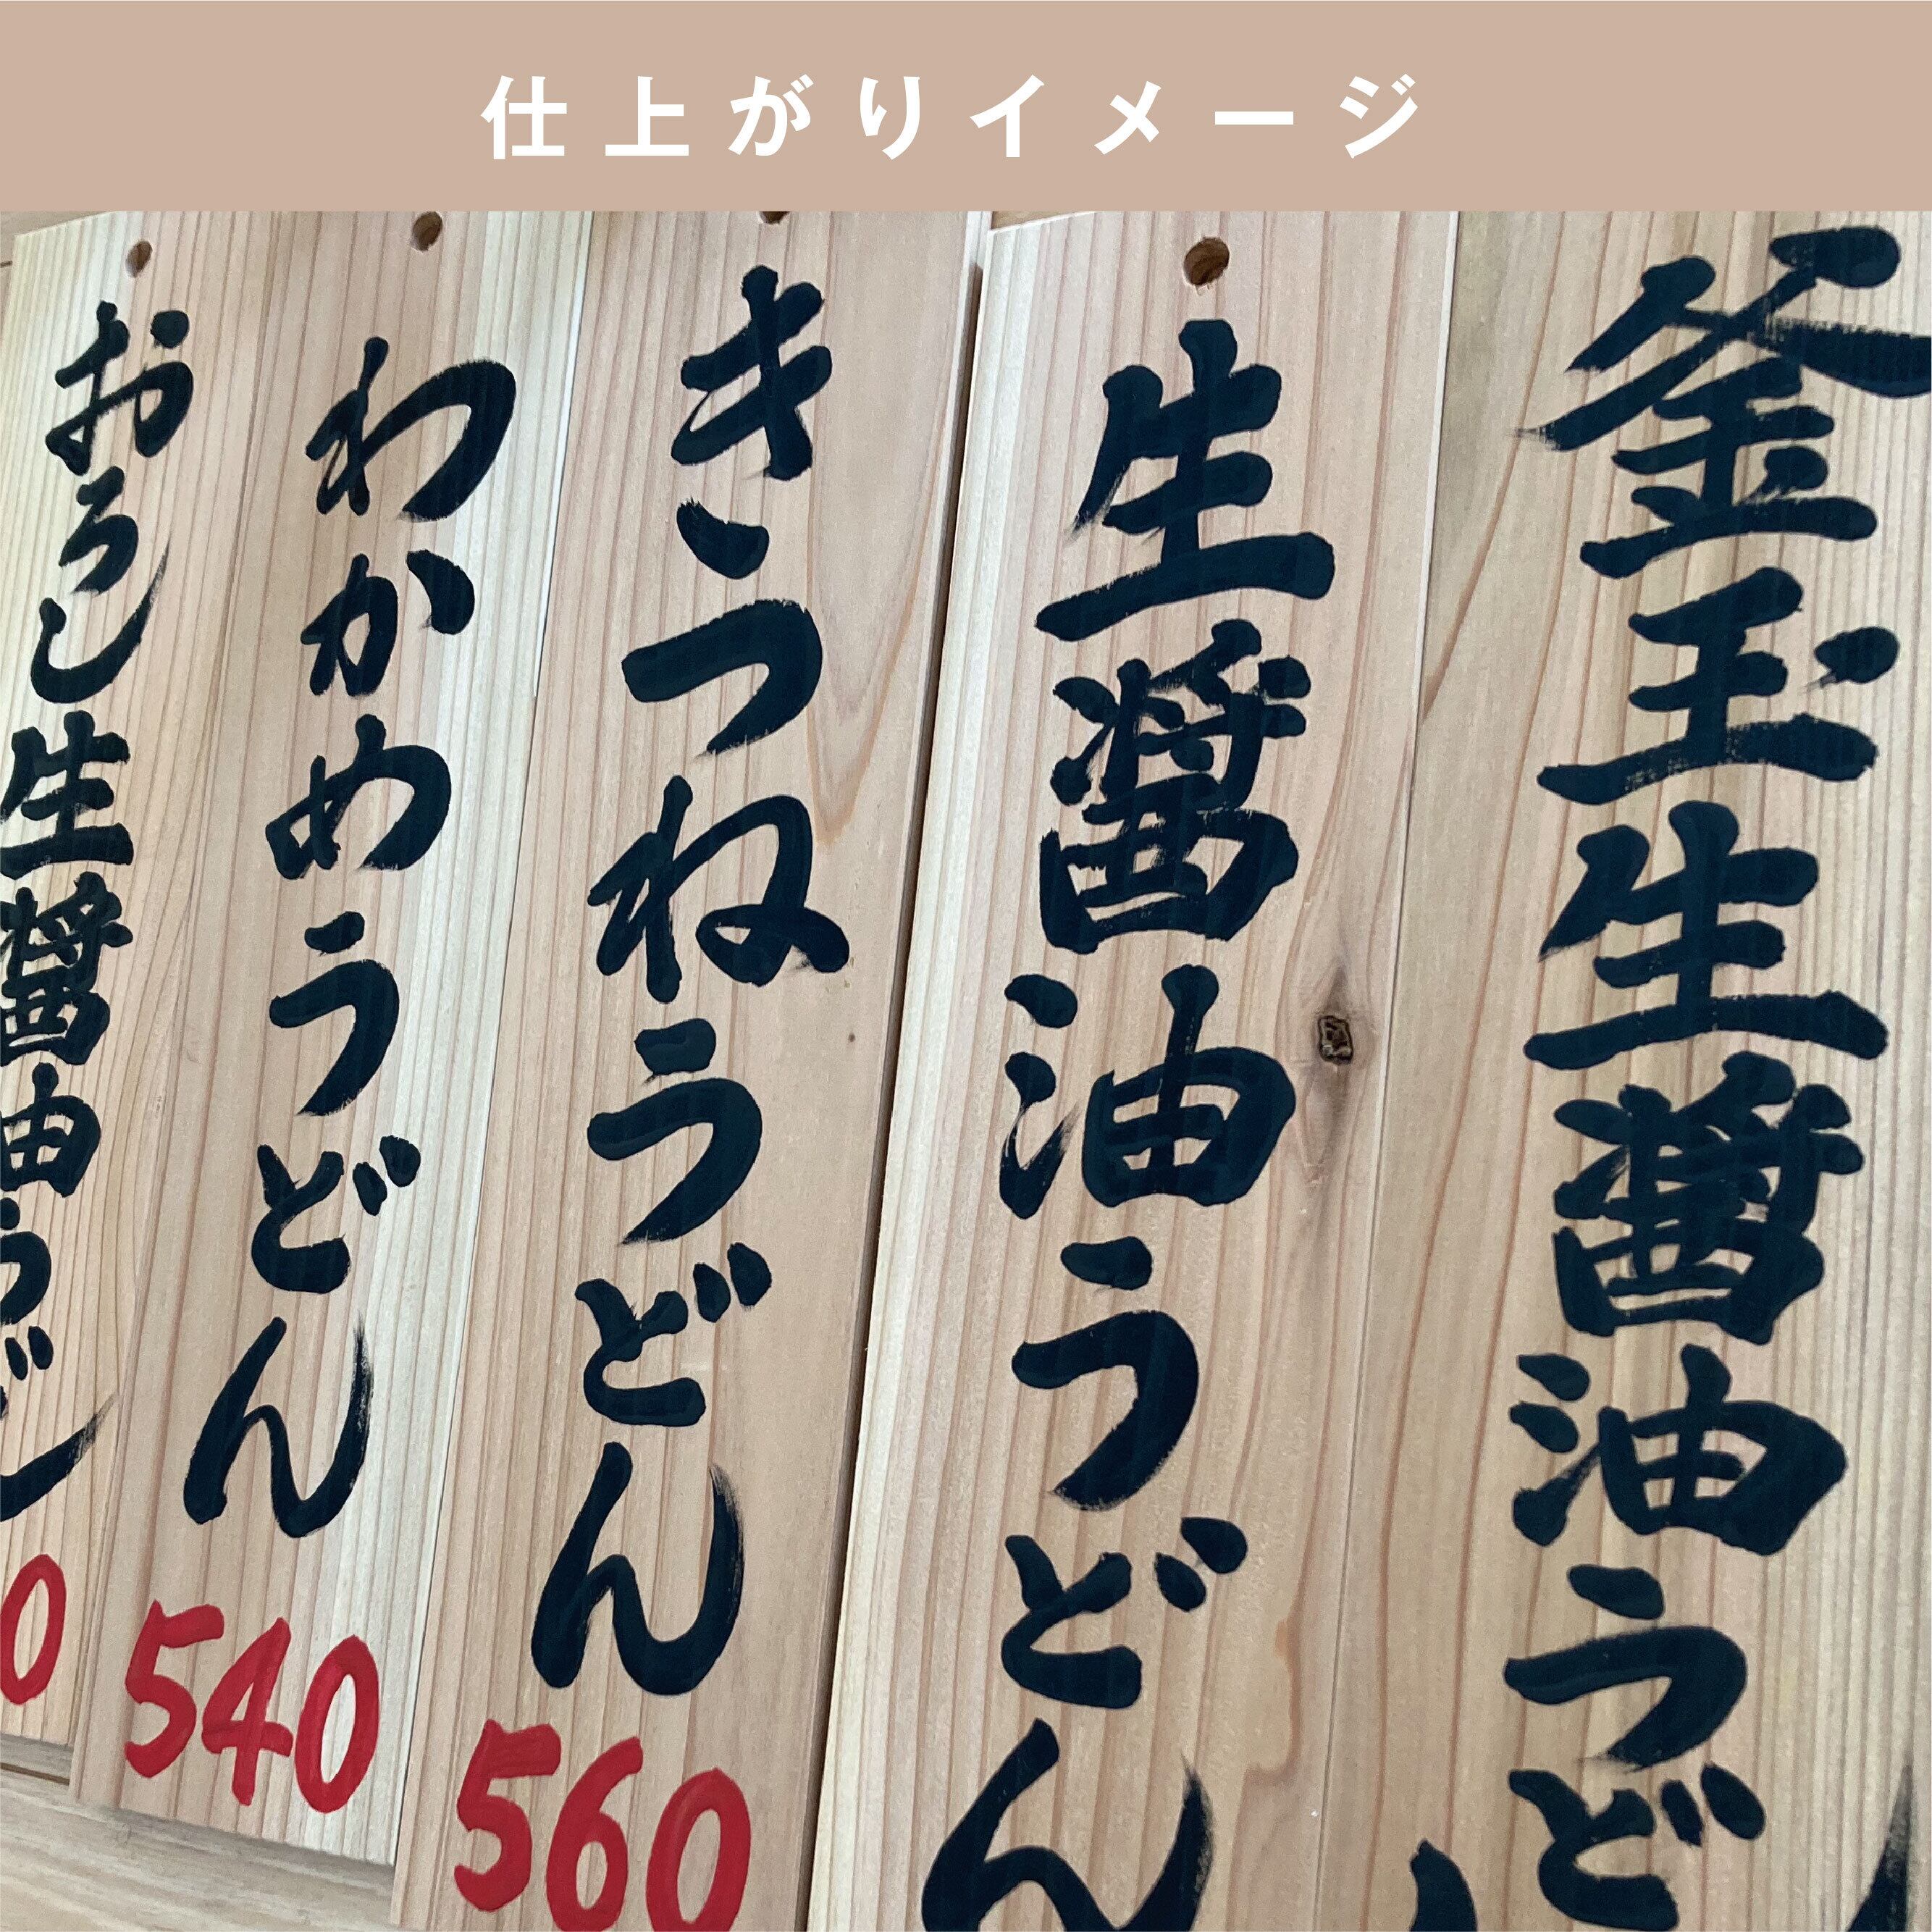 仕上がりイメージ
釜玉生醤油うどん
生醤油うどん
きつねうどん
560
わかめうどん
540
おろし生醤油うどん
0